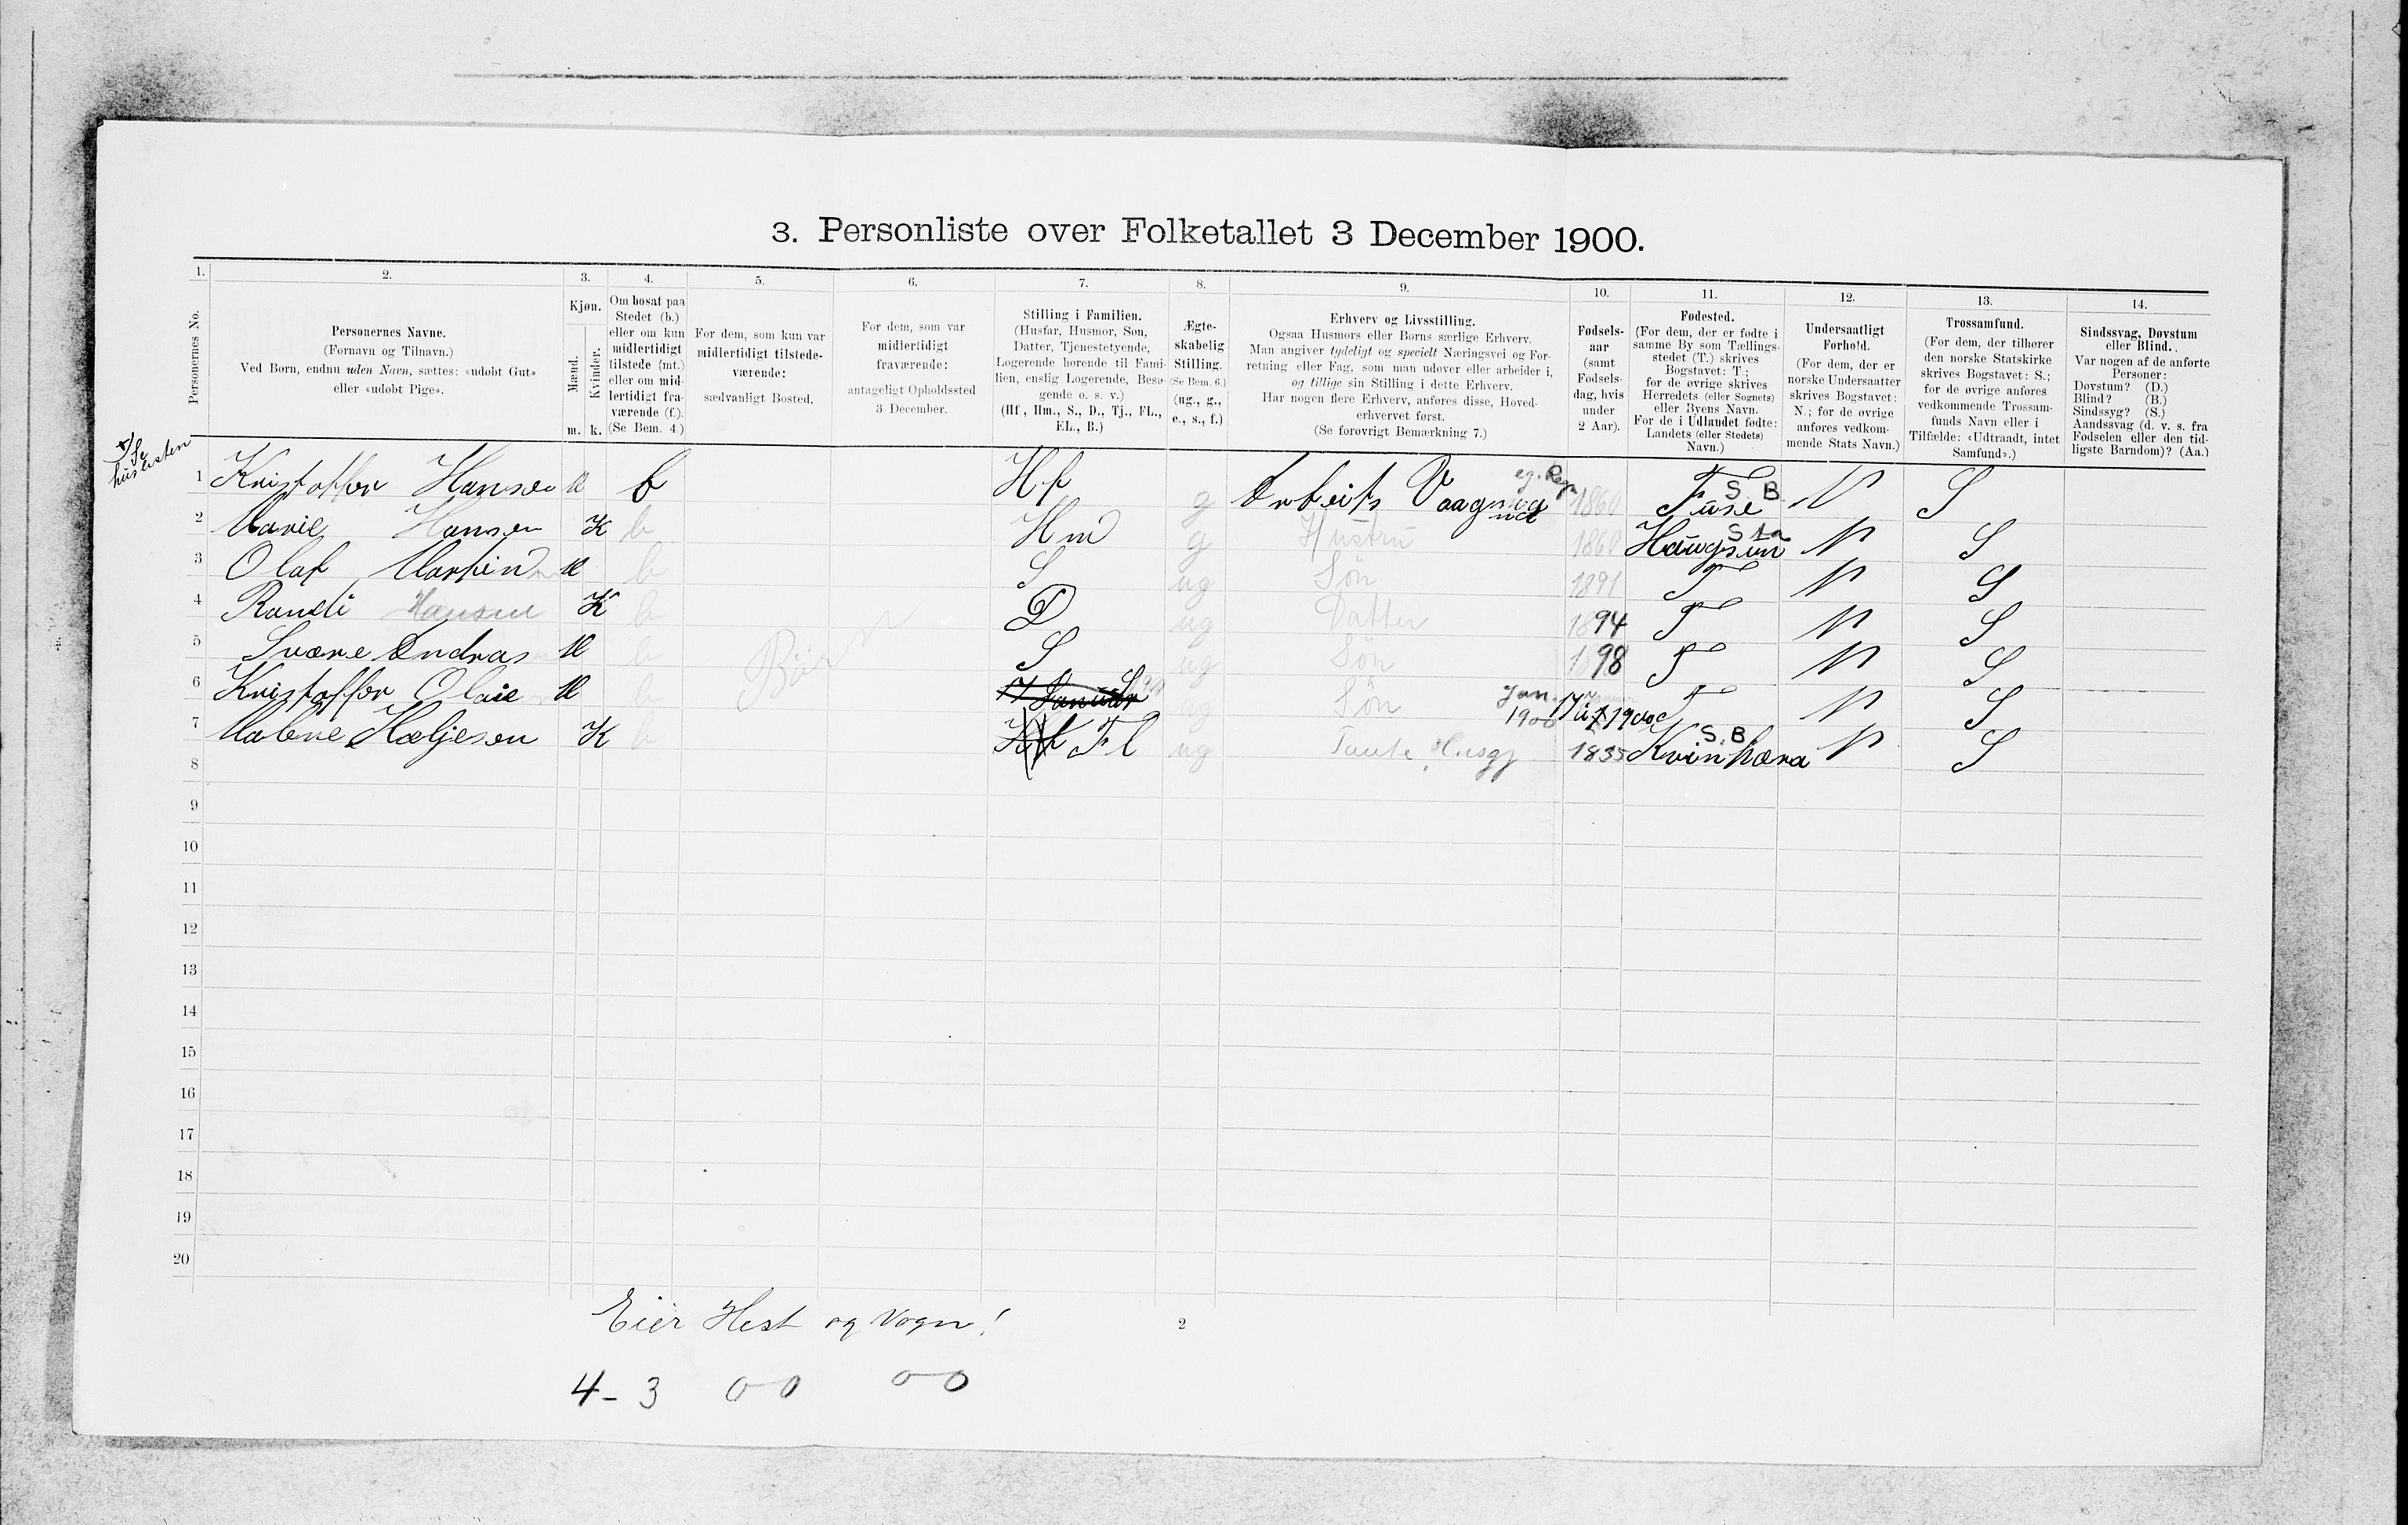 3. Personliste over Folketallet 3 December 1900.
1. 2. 3. 4. 5. 6. 7. 8. 9. 10. 11. 12. 13. 14.
Personernes No.
Personernes Navne.
(Fornavn og Tilnavn.)
Ved Børn, endnu uden Navn, sættes: «udøbt Gut»
eller «udøbt Pige».
Kjøn.
Mænd.
Kvinder.
m. k.
Om bosat paa
Stedet (b.)
eller om kun
midlertidigt
tilstede (mt.)
eller om mid-
lertidigt fra-
værende (f.).
(Se Bem. 4.)
For dem, som kun var
midlertidigt tilstede-
værende:
sædvanligt Bosted.
For dem, som var
midlertidigt
fraværende:
antageligt Opholdssted
3 December.
Stilling i Familien.
(Husfar, Husmor, Søn,
Datter, Tjenestetyende,
Logerende hørende til Fami-
lien, enslig Logerende, Besø-
gende o. s. v.)
(Hf., Hm., S., D., Tj., FL.,
EL., B.)
Ægte-
skabelig
Stilling.
(Se Bem. 6.)
(ug., g.,
e., s., f.)
Erhverv og Livsstilling.
Ogsaa Husmors eller Børns særlige Erhverv.
Man angiver tydeligt og specielt Næringsvei og For-
retning eller Fag, som man udøver eller arbeider i,
og tillige sin Stilling i dette Erhverv.
Har nogen flere Erhverv, anføres disse, Hoved-
erhvervet først.
(Se forøvrigt Bemærkning 7.)
Fødsels-
aar
(samt
Fødsels-
dag, hvis
under
2 Aar).
Fødested.
(For dem, der er fødte i
samme By som Tællings-
stedet (T.) skrives
Bogstavet: T.;
for de øvrige skrives
Herredets (eller Sognets)
eller Byens Navn.
For de i Udlandet fødte:
Landets (eller Stedets)
Navn.)
Undersaatligt
Forhold.
(For dem, der er
norske Undersaatter
skrives Bogstavet:
N.; for de øvrige
anføres vedkom-
mende Stats Navn.)
Trossamfund.
(For dem, der tilhører
den norske Statskirke
skrives Bogstavet: S.;
for de øvrige anføres
vedkommende Trossam-
funds Navn eller i
Tilfælde: «Udtraadt, intet
Samfund».)
Sindssvag, Døvstum
eller Blind.
Var nogen af de anførte
Personer:
Døvstum? (D.)
Blind? (B.)
Sindssyg? (S.)
Aandssvag (d. v. s. fra
Fødselen eller den tid-
ligste Barndom)? (Aa.)
x) Se
huslisten
1 Kristoffer Hansen M b Hf g Arbeits Vaagn eg. Regn 1860 Fuse S. B. N S
2 Marie Hansen K b Hm g Hustru 1860 Haugsun N S
3 Olaf Martin M b S ug Søn 1891 T N S
4 Randi Hansen K b D ug Datter 1894 T N S
5 Svære Andreas M b Børn S ug Søn 1898 T N S
6 Kristoffer Olai M b 17 Januar S ug Søn Jan. 1900 17 1900 T N S
7 Malene Hæljesen K b Hf Fl ug Tante Husgj 1835 Kvinhæra S. B. N S
8
9
10
11
12
13
14
15
16
17
18
19
20
Eier Hest og Vogn!
2
4-3 0-0 0-0